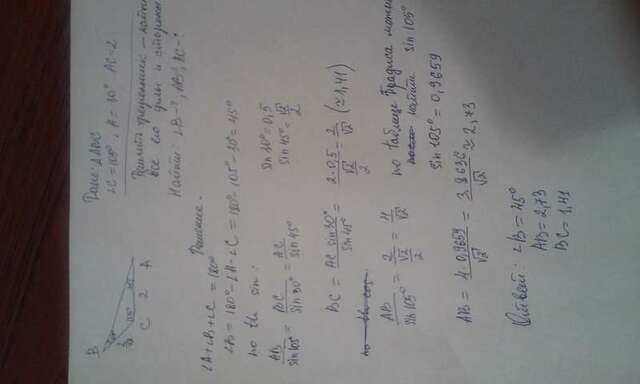 B
C 2 A
45° 105° 30°
Дано: ΔABC
∠C = 105°, A = 30° AC = 2
Решить треугольник – найти
все его углы и стороны
Найти: ∠B - ?, AB - ?, BC - ?
Решение.
∠A + ∠B + ∠C = 180°
∠B = 180° - ∠A - ∠C = 180° - 105° - 30° = 45°
по th sin:
AB / sin 105° = BC / sin 30° = AC / sin 45°
sin 30° = 0,5
sin 45° = √2 / 2
BC = AC sin 30° / sin 45° = 2·0,5 / (√2 / 2) = 2 / √2 (≈1,41)
AB / sin 105° = 2 / (√2 / 2) = 4 / √2
по таблице Брадиса можно
найти sin 105°
sin 105° = 0,9659
AB = 4·0,9659 / √2 = 3,8636 / √2 ≈ 2,73
Ответ: ∠B = 45°
AB = 2,73
BC = 1,41